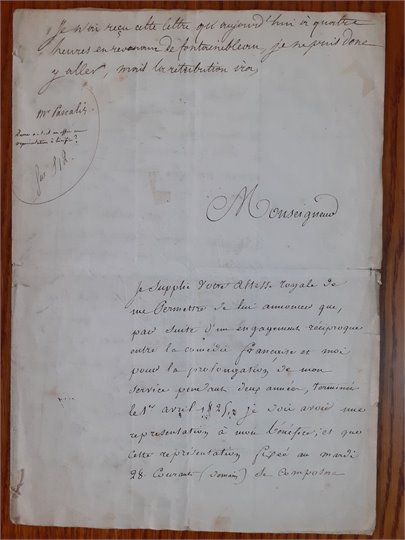 Je n'ai reçu cette lettre qu'aujourd'hui à quatre
heures en revenant de fontainebleau, je ne puis donc
y aller, mais la retribution ira,
Mr Pascalis
a-t-il un effet
à ?
Monseigneur
Je Supplie Votre Altesse royale de
me Permettre de lui annoncer que,
par suite d'un engagement réciproque
entre la comédie française et moi
pour la prolongation de mon
service pendant deux années, terminées
le 1er avril 1825, je dois avoir une
représentation à mon bénéfice; et que
cette représentation fixée au mardi
28 Courant (Demain) se composera